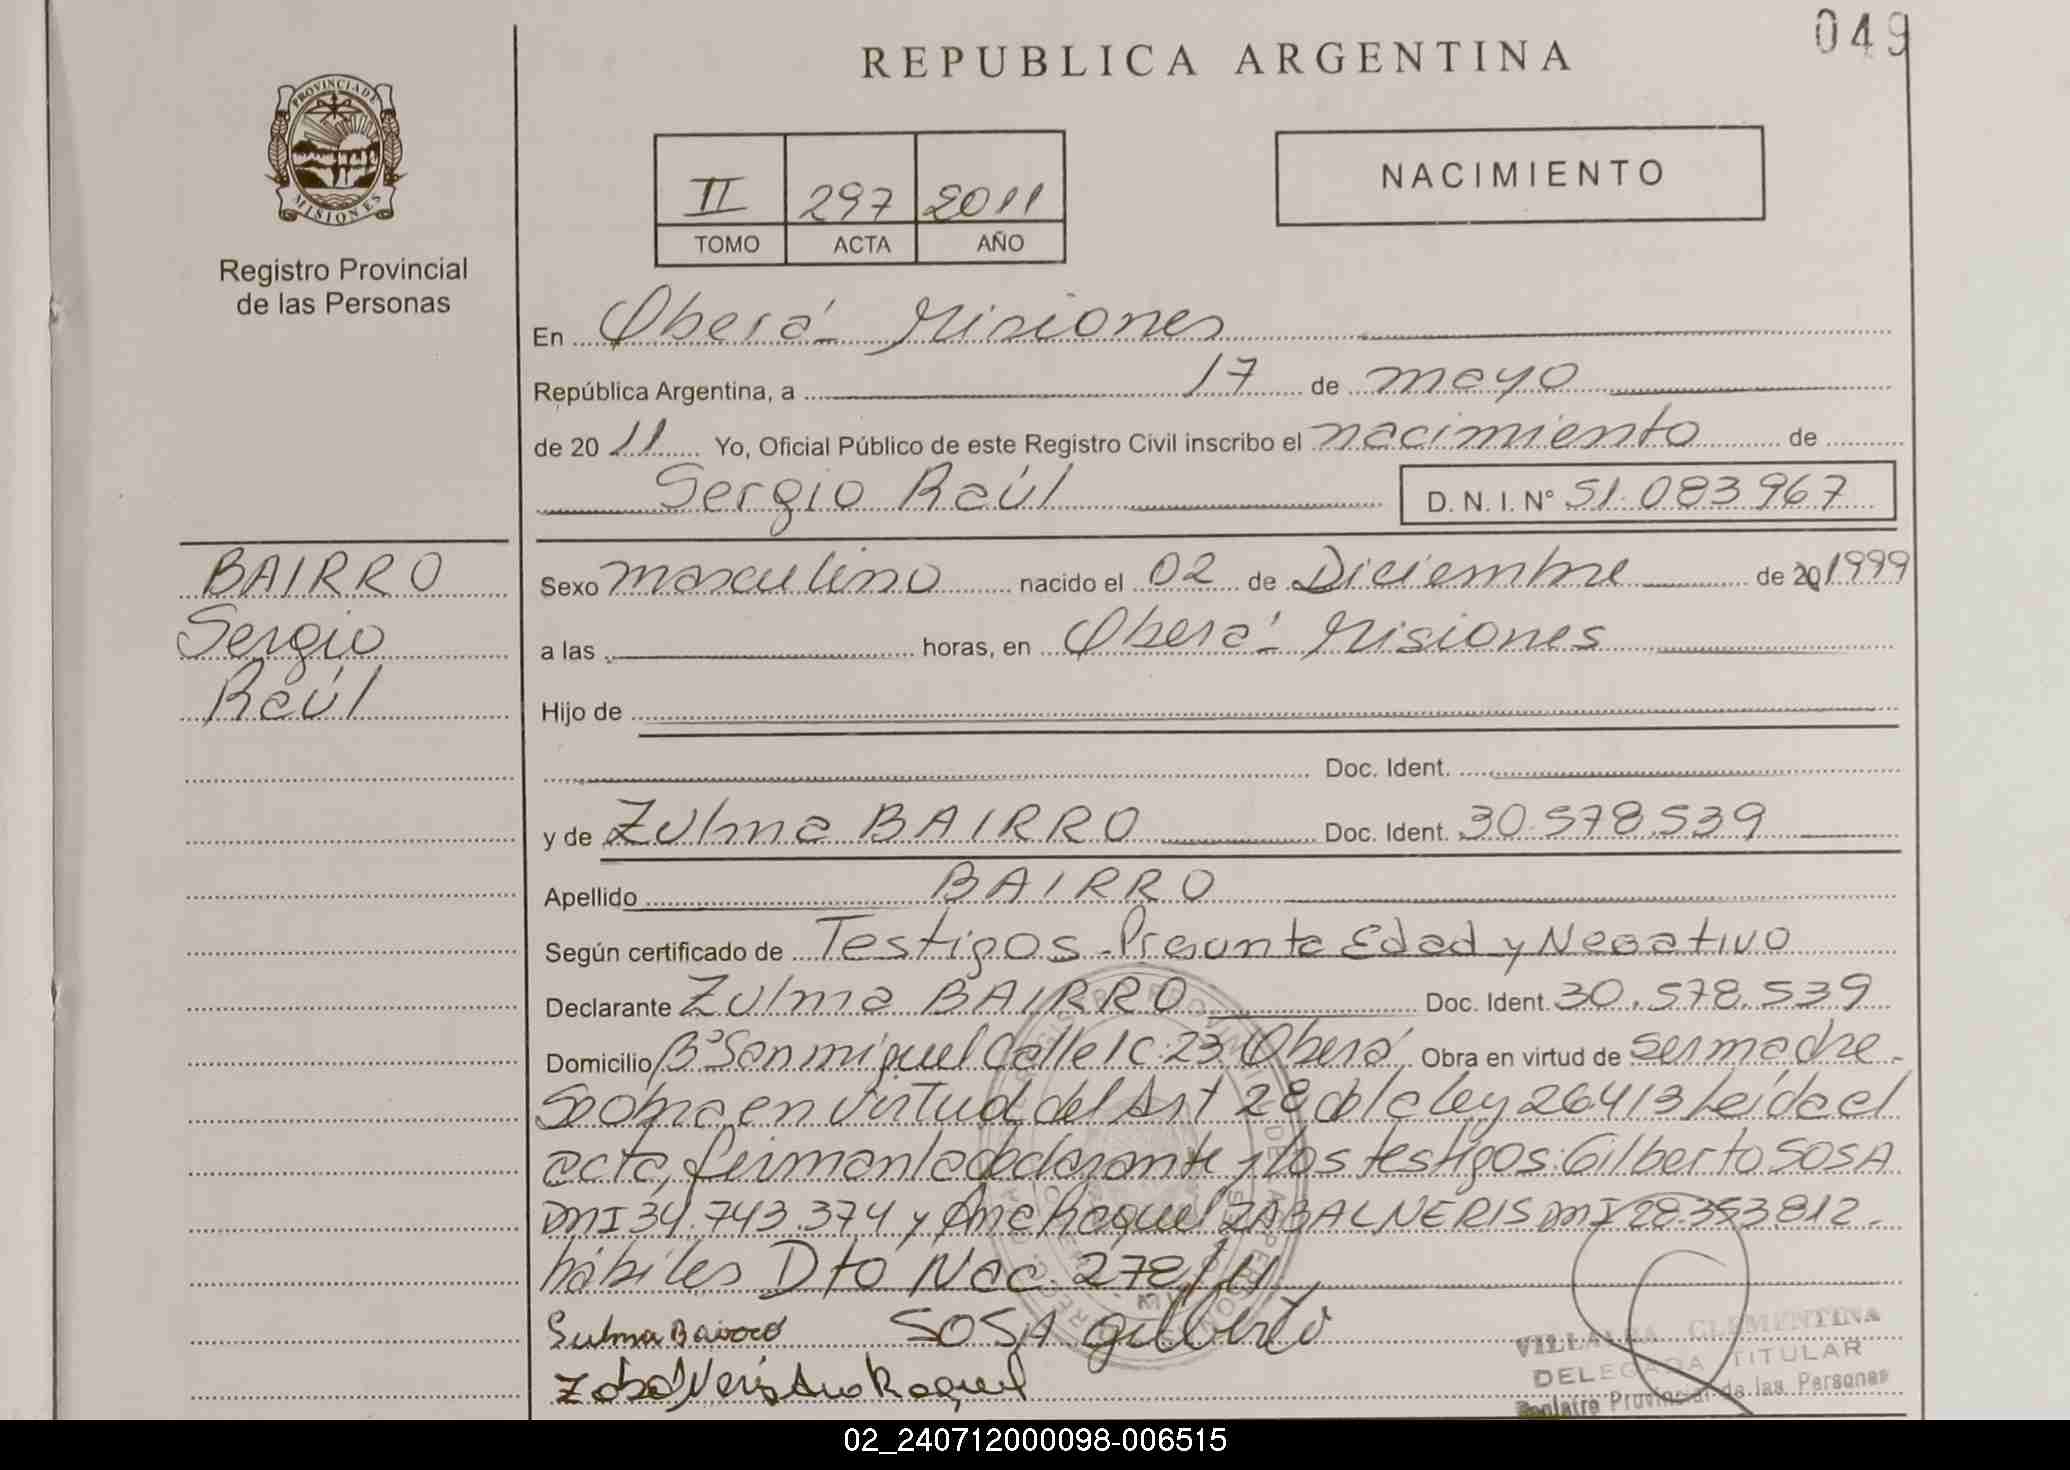 049
REPUBLICA ARGENTINA
PROVINCIA DE
MISIONES
Registro Provincial
de las Personas
II 297 2011
TOMO ACTA AÑO
NACIMIENTO
En Oberá Misiones
República Argentina, a 17 de mayo
de 20 11 Yo, Oficial Público de este Registro Civil inscribo el nacimiento de
Sergio Raúl D. N. I. N° 51.083967
BAIRRO
Sergio
Raúl
Sexo masculino nacido el 02 de Diciembre de 20 1999
a las horas, en Oberá Misiones
Hijo de
Doc. Ident.
y de Zulma BAIRRO Doc. Ident. 30.578.539
Apellido BAIRRO
Según certificado de Testigos - Presunta Edad y Negativo
Declarante Zulma BAIRRO Doc. Ident. 30.578.539
Domicilio B° San miguel Calle 1 C: 23 Oberá Obra en virtud de ser madre -
Se obra en virtud del Art 28 de la ley 26413 Leída el
acta, firman la declarante y los testigos: Gilberto SOSA
DNI 34.743.374 y Ana Raquel ZABALNERIS DNI 28.353.812 -
hábiles Dto Nac. 278/11
Sulma Bairro SOSA Gilberto
Zabalneris Ana Raquel
VILLALBA CLEMENTINA
DELEGADA TITULAR
Registro Provincial de las Personas
02_240712000098-006515